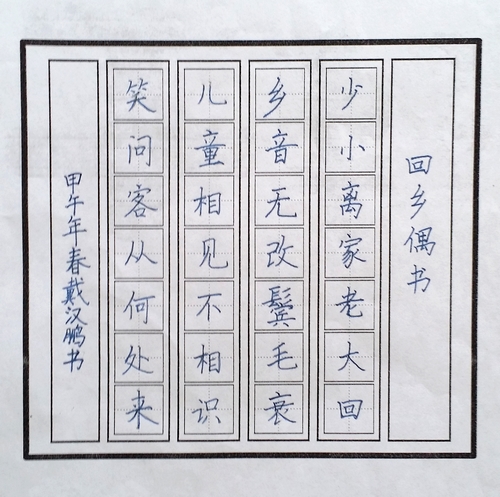 回乡偶书
少小离家老大回
乡音无改鬓毛衰
儿童相见不相识
笑问客从何处来
甲午年春戴汉鹏书